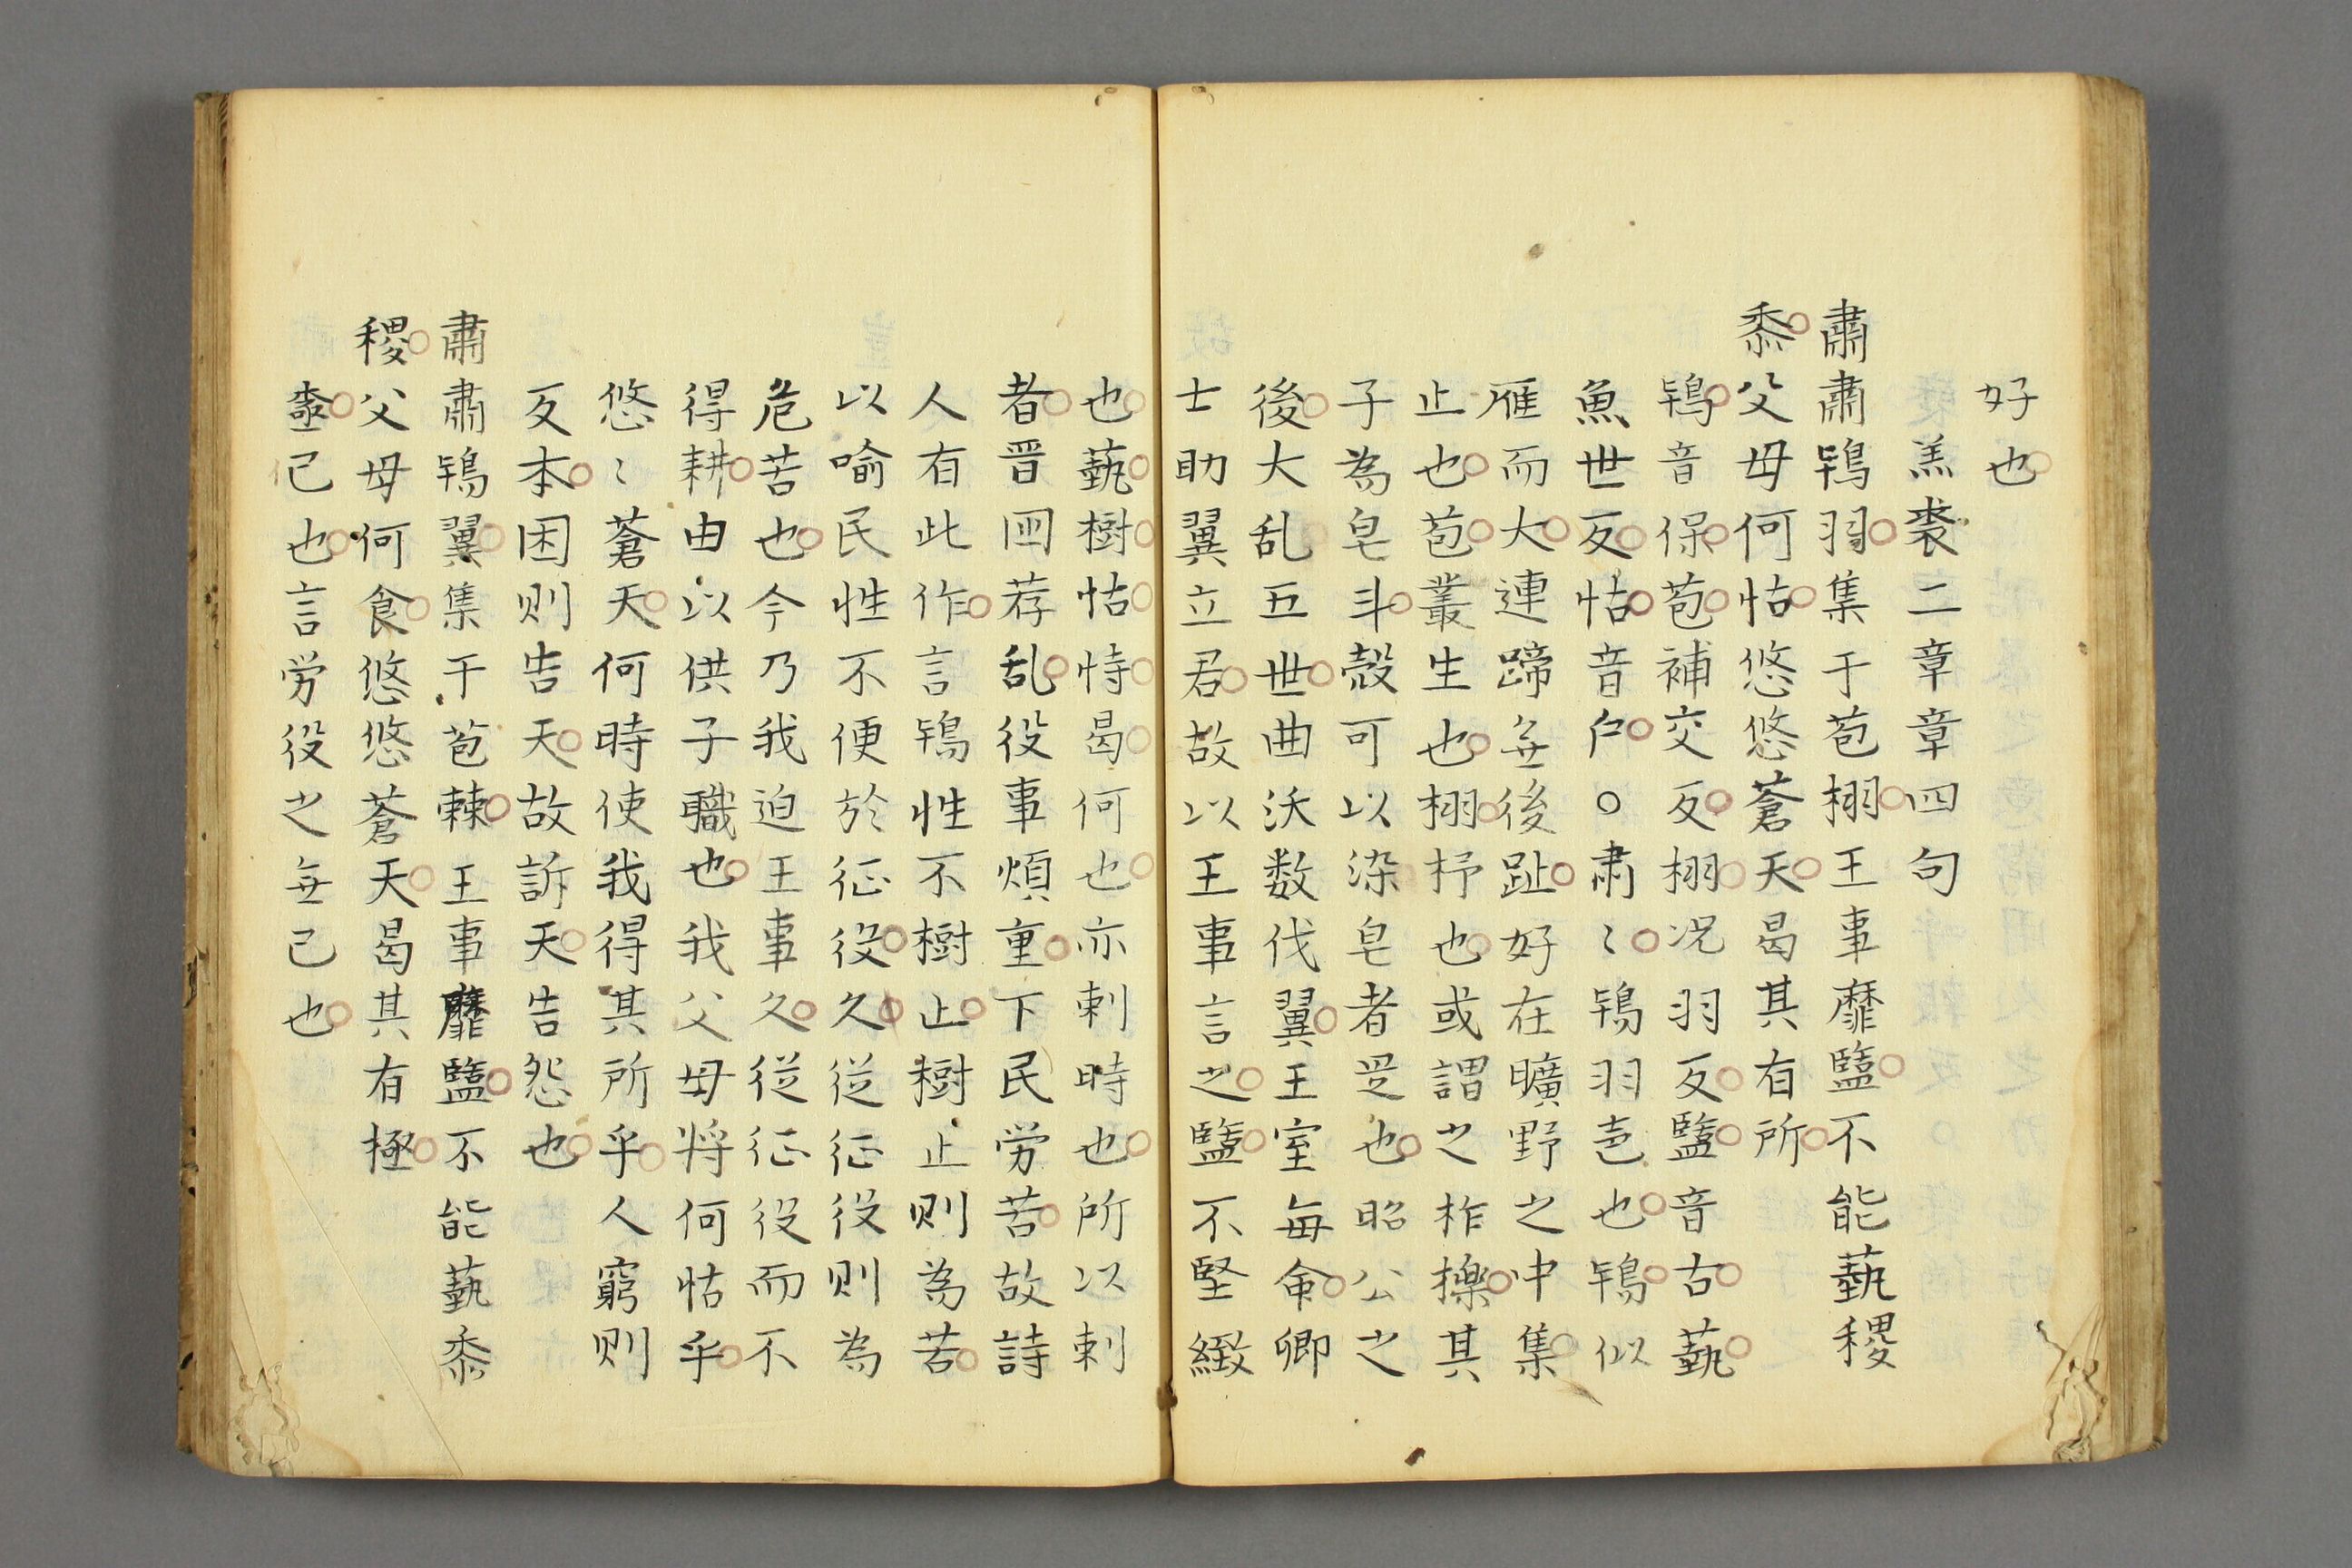 好也
羔裘二章章四句
肅肅鴇羽集于苞栩王事靡盬不能蓺稷
黍父母何怙悠悠蒼天曷其有所
鴇音保苞補交反栩况羽反盬音古蓺
魚世反怙音户○肅〻鴇羽苞也鴇似
雁而大連蹄無後趾好在曠野之中集
止也苞叢生也栩杼也或謂之柞櫟其
子為皂斗殼可以染皂者是也昭公之
後大乱五世曲沃数伐翼王室每命卿
士助翼立君故以王事言之盬不堅緻
也蓺樹怙恃曷何也亦刺時也所以刺
者晋国荐乱役事煩重下民労苦故詩
人有此作言鴇性不樹止樹止則為苦
以喻民性不便於征役久從征役則為
危苦也今乃我迫王事久從征役而不
得耕由以供子職也我父母将何怙乎
悠〻蒼天何時使我得其所乎人窮則
反本困則告天故訴天告怨也
肅肅鴇翼集于苞棘王事靡盬不能蓺黍
稷父母何食悠悠蒼天曷其有極
已也言労役之無已也